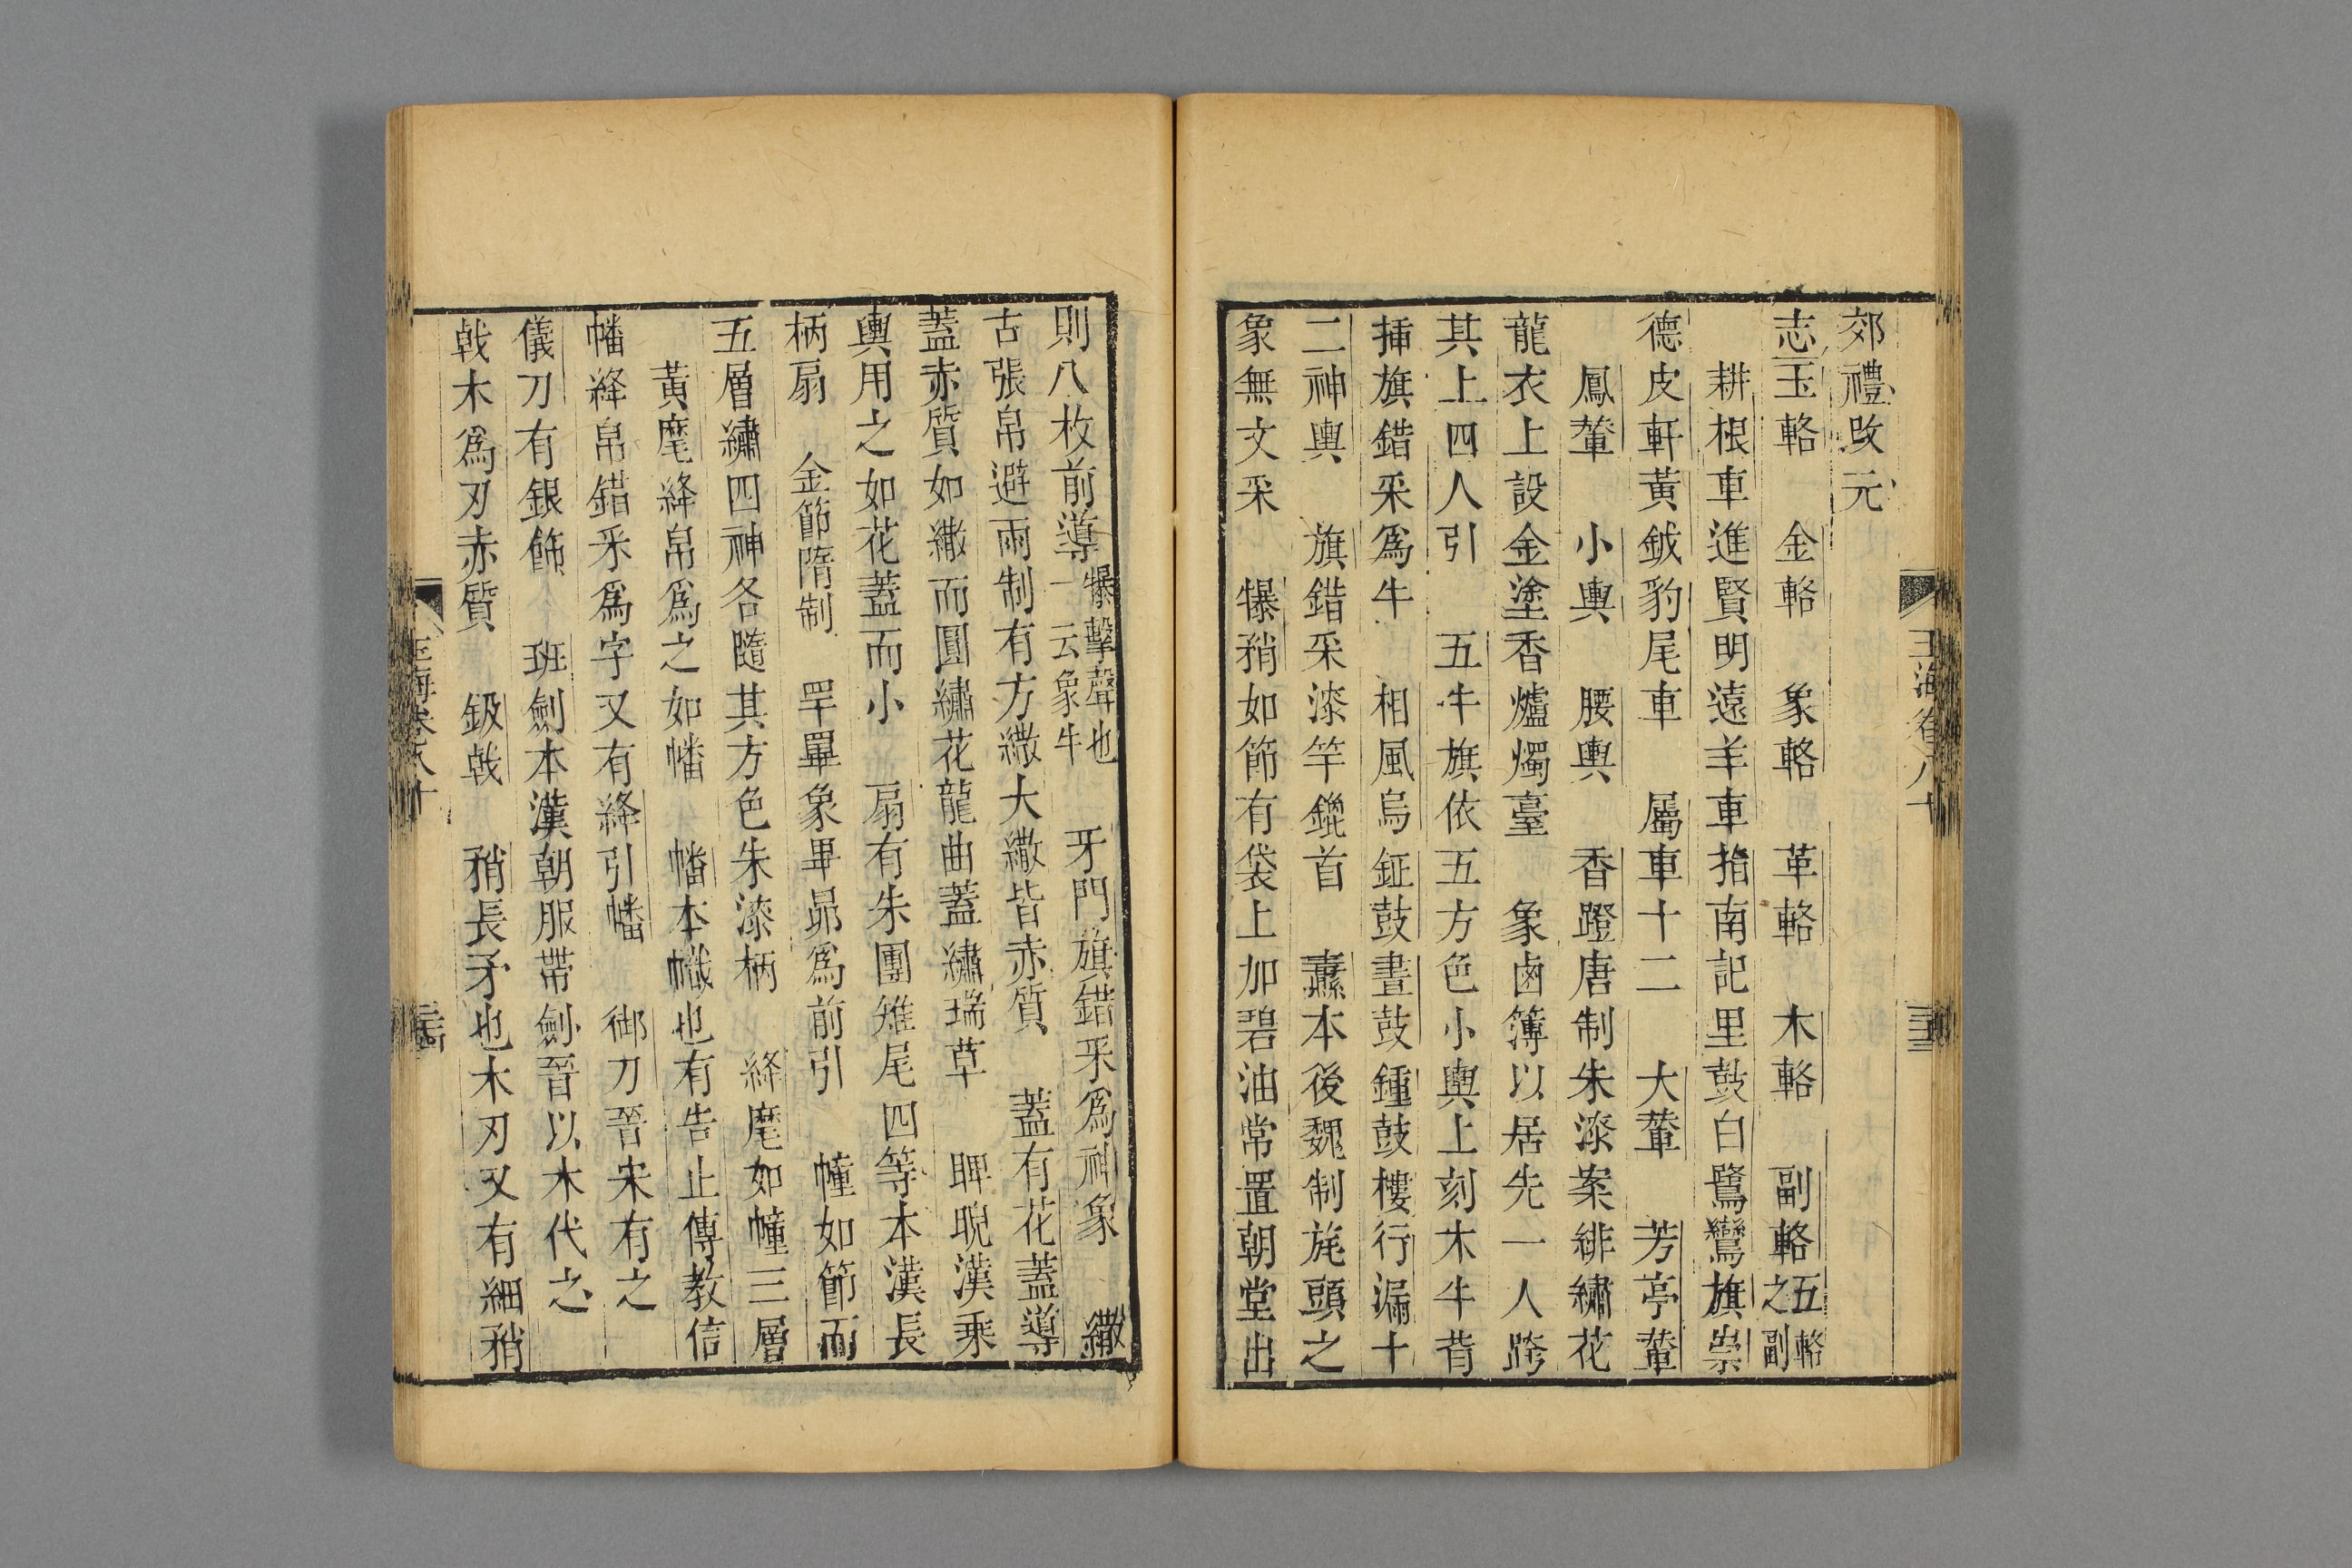 郊禮改元
志玉輅　金輅　象輅　革輅　木輅　副輅五輅之副
耕根車進賢明遠羊車指南記里鼓白鷺鸞旗崇
德皮軒黃鉞豹尾車　屬車十二　大輦　芳亭輦
鳳輦　小輿　腰輿　香蹬唐制朱漆案緋繡花
龍衣上設金塗香爐燭臺　象鹵簿以居先一人跨
其上四人引　五牛旗依五方色小輿上刻木牛背
揷旗錯采爲牛　相風烏鉦鼓晝鼓鍾鼓樓行漏十
二神輿　旗錯采漆竿鑞首　纛本後魏制旄頭之
象無文采　犦矟如節有袋上加碧油常置朝堂出
玉海卷八十
則八枚前導犦擊聲也一云象牛　牙門旗錯采爲神象　繖
古張帛避雨制有方繖大繖皆赤質　蓋有花蓋導
蓋赤質如繖而圓繡花龍曲蓋繡瑞草　睥睨漢乘
輿用之如花蓋而小　扇有朱團雉尾四等本漢長
柄扇　金節隋制　罕罼象畢昴爲前引　幢如節而
五層繡四神各隨其方色朱漆柄　絳麾如幢三層
黃麾絳帛爲之如幡　幡本幟也有告止傳教信
幡絳帛錯采爲字又有絳引幡　御刀晉宋有之
儀刀有銀飾　班劍本漢朝服帶劍晉以木代之
戟木爲刃赤質　鈒戟　矟長矛也木刃又有細矟
玉海卷八十